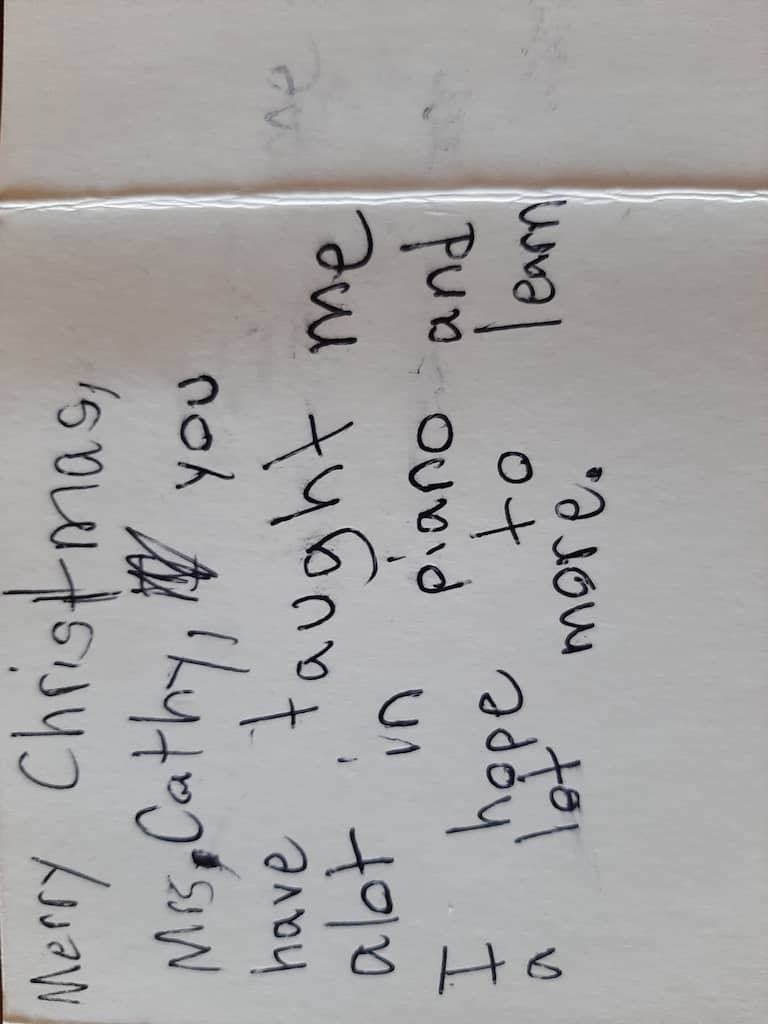 Merry Christmas,
Mrs, Cathy, you
have taught me
alot in piano and
I hope to learn
a lot more.
me